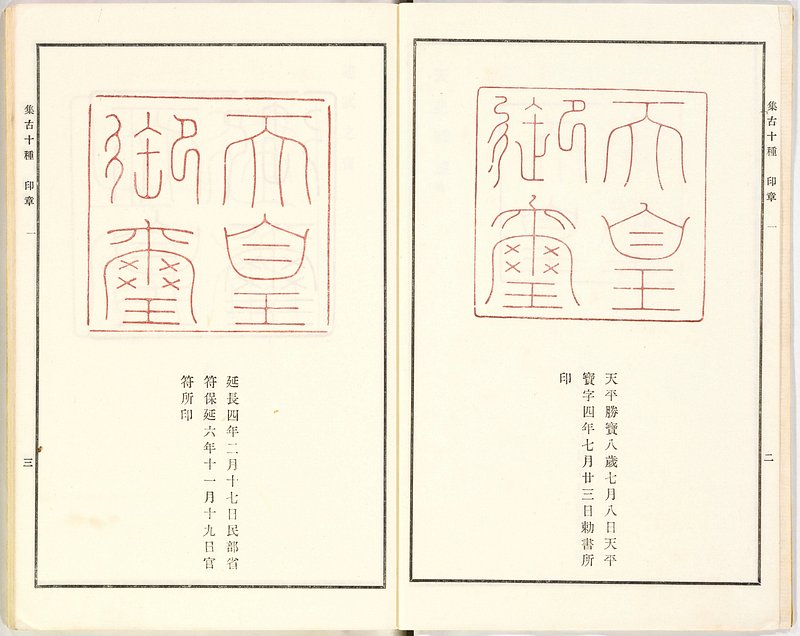 集古十種 印章 一
天皇
御璽
天平勝寶八歲七月八日天平
寶字四年七月廿三日勅書所
印
二
集古十種 印章 一
天皇
御璽
延長四年二月十七日民部省
符保延六年十一月十九日官
符所印
三